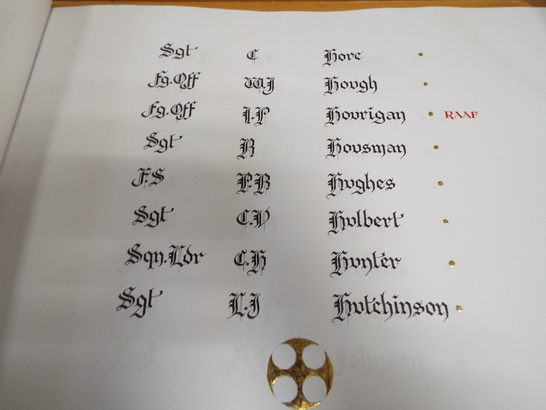 Sgt C Hore
Fg.Off W.J Hough
Fg.Off I.P Hourigan RAAF
Sgt R Housman
F.S P.B Hughes
Sgt C.V Hulbert
Sqn.Ldr C.H Hunter
Sgt L.J Hutchinson